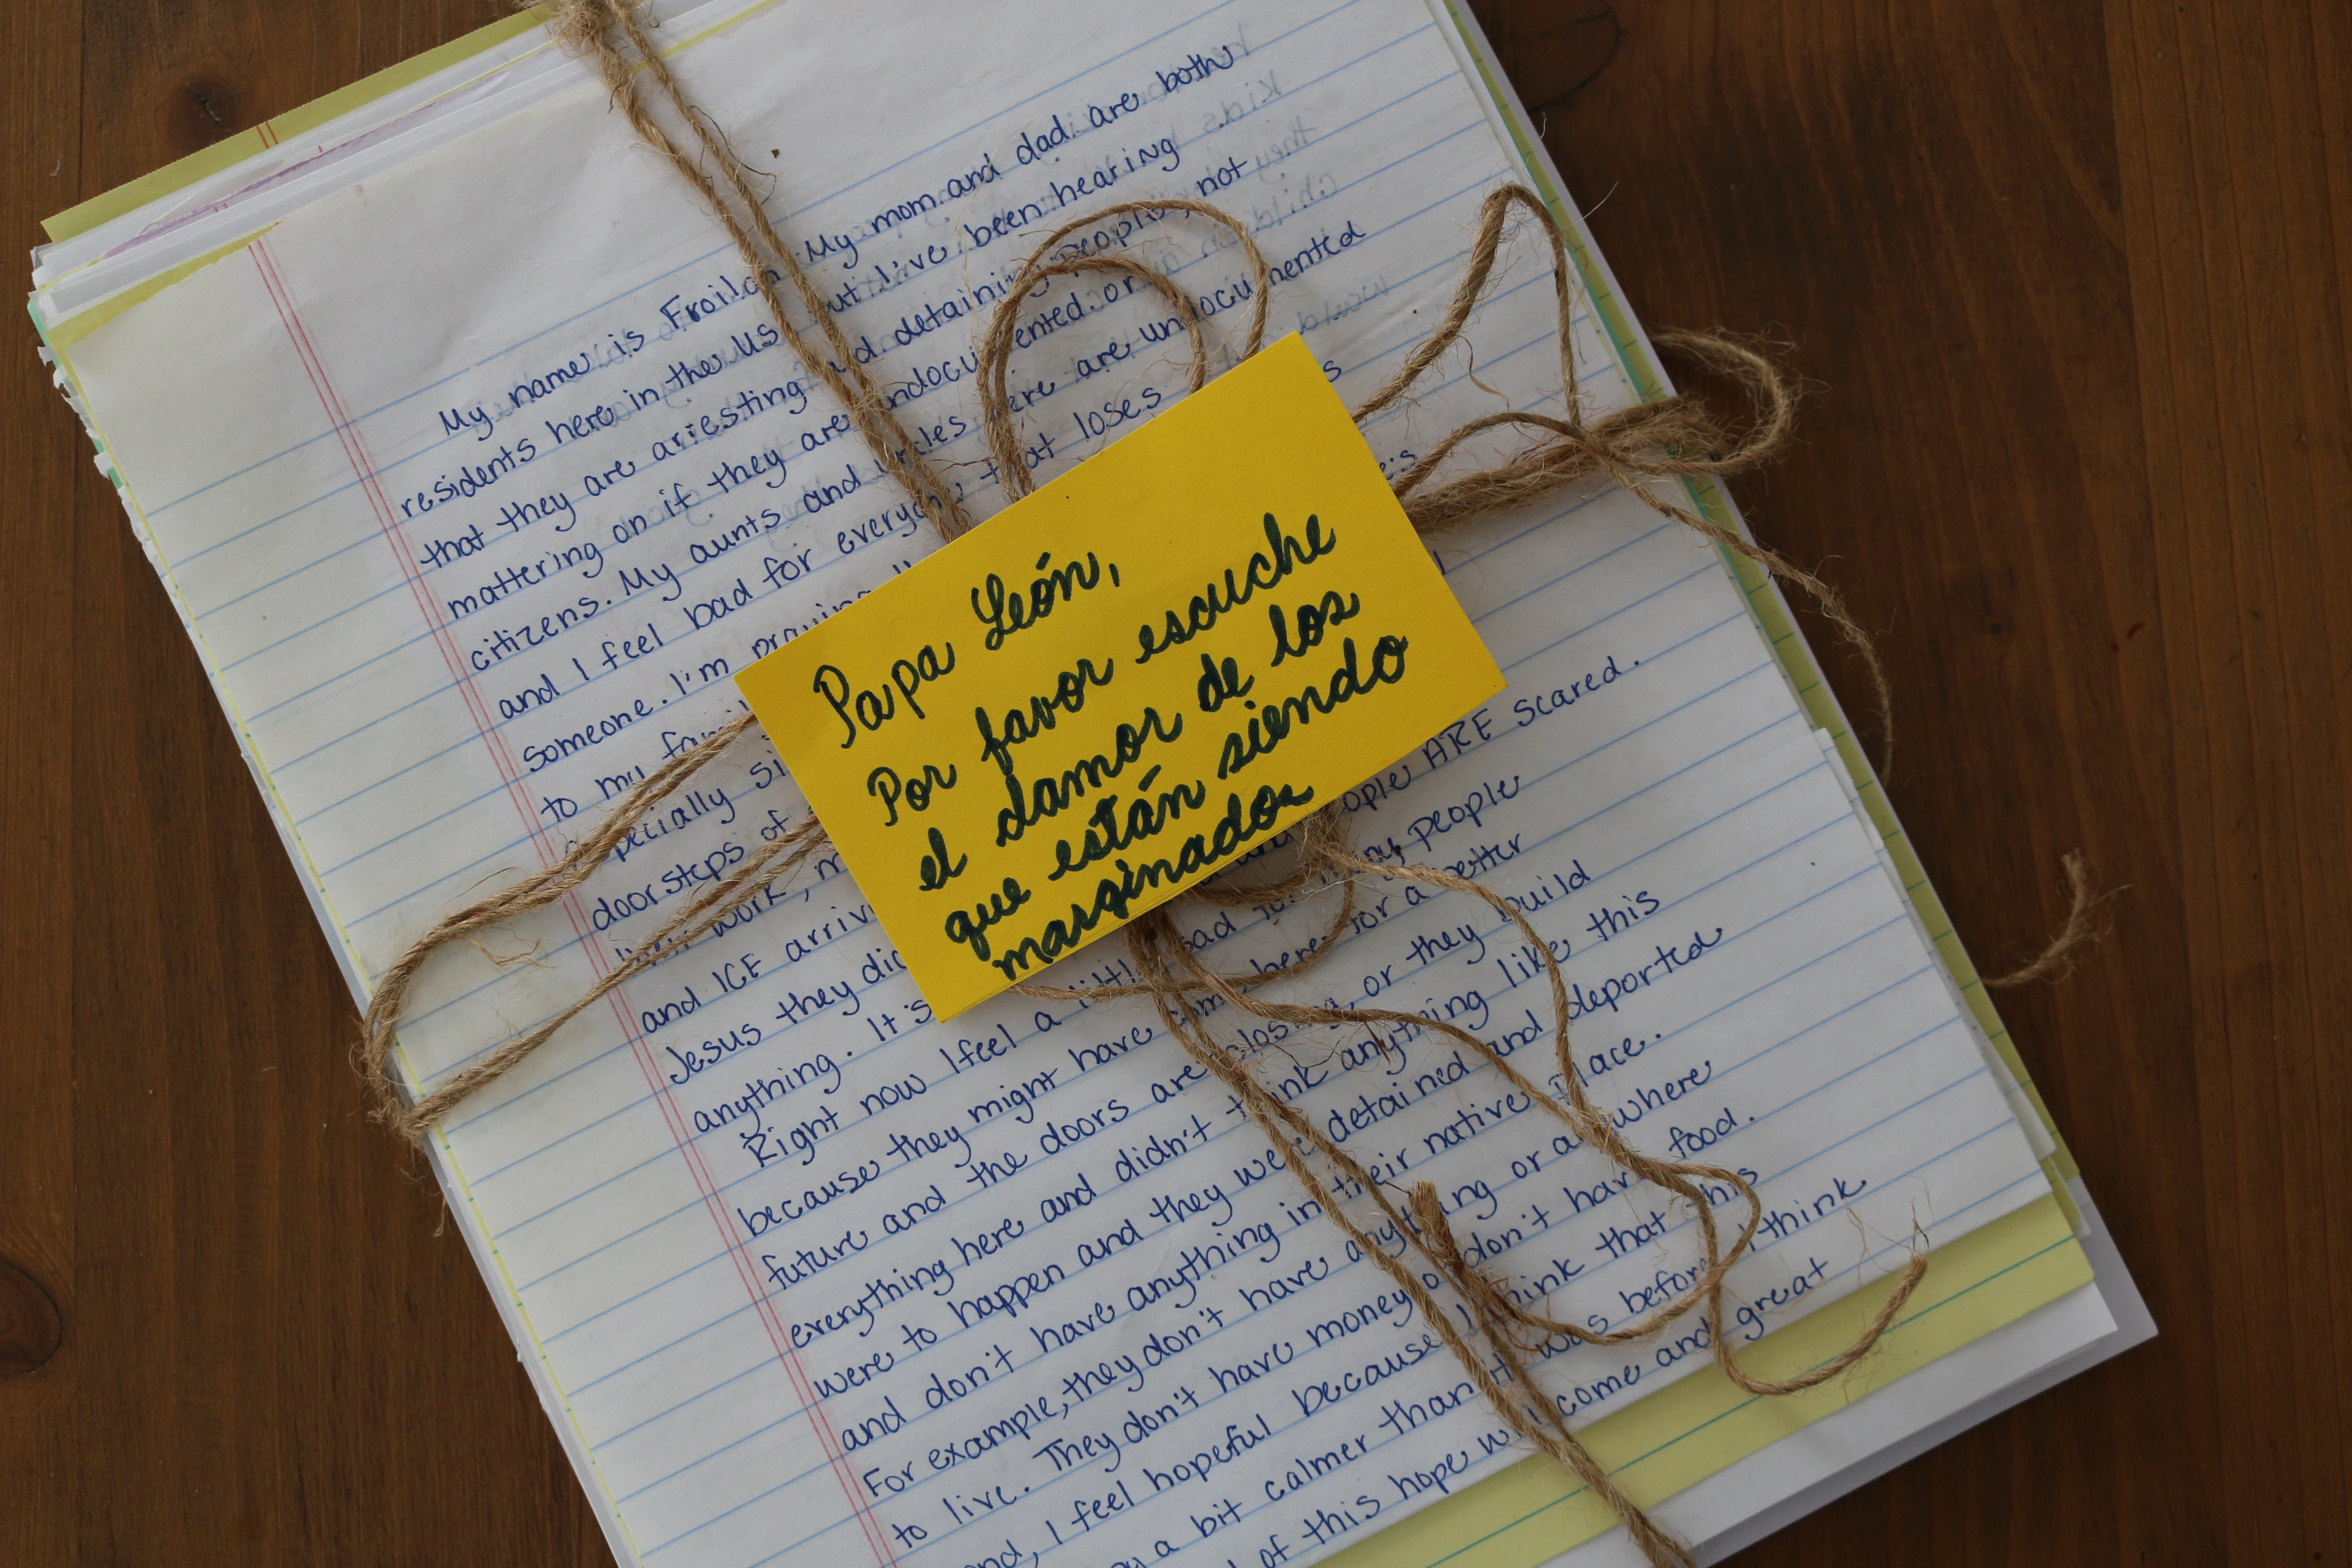 My name is Froilan. My mom and dad are both
residents here in the US but I've been hearing
that they are arresting and detaining people, not
mattering on if they are undocumented or
citizens. My aunts and uncles here are undocumented
and I feel bad for everyone that loses
someone. I'm praying
to my
especially
doorsteps of
work,
and ICE
Jesus they
anything. It's
Papa León,
Por favor escuche
el clamor de los
que están siendo
marginados
people ARE scared.
Right now I feel a little bad for many people
because they might have come here for a better
future and the doors are closing, or they build
everything here and didn't think anything like this
were to happen and they were detained and deported
and don't have anything in their native place.
For example, they don't have anything or anywhere
to live. They don't have money or don't have food.
I feel hopeful because I think that this
a bit calmer than it was before. I think
of this hope will come and great